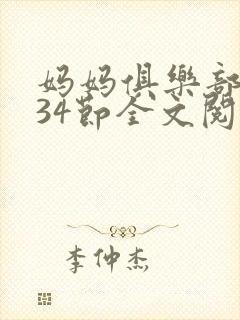 妈妈俱樂部
34節全文閱
李仲杰